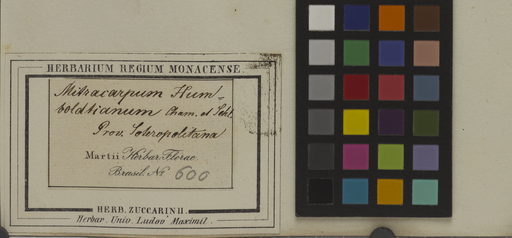 HERBARIUM REGIUM MONACENSE.
Mitracarpum Hum-
boldtianum Cham. et Schl.
Prov. Soteropolitana
Martii Herbar. Florae
Brasil. No. 600
HERB. ZUCCARINII.
Herbar. Univ. Ludov. Maximil.